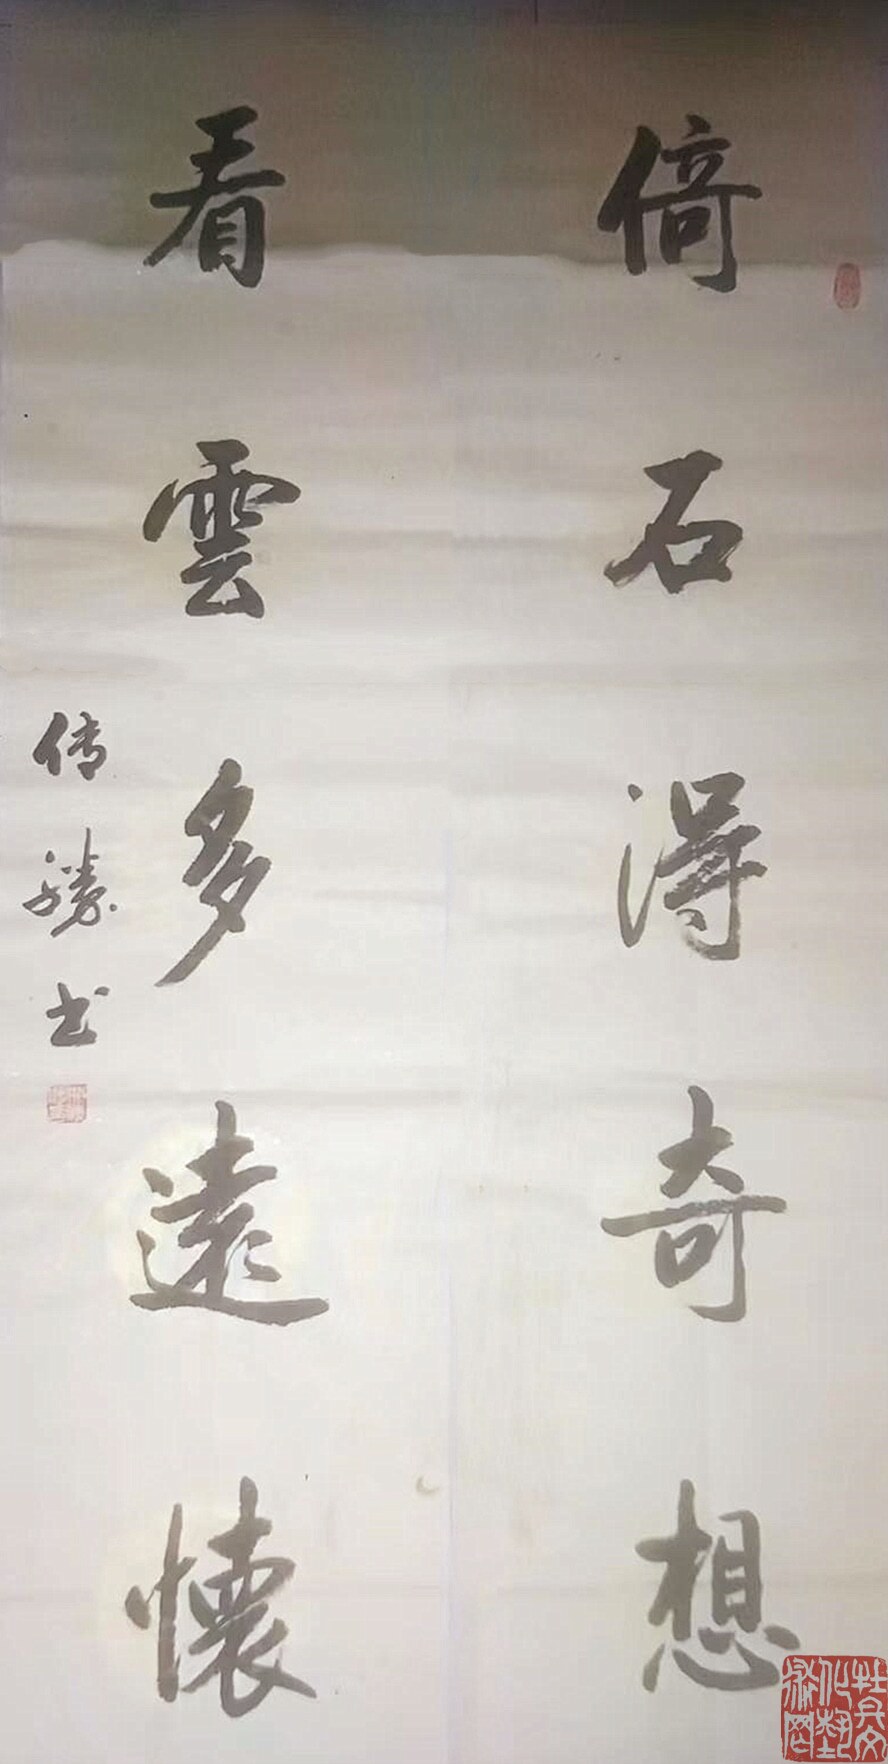 倚石得奇想
看雲多遠懷
传勝书